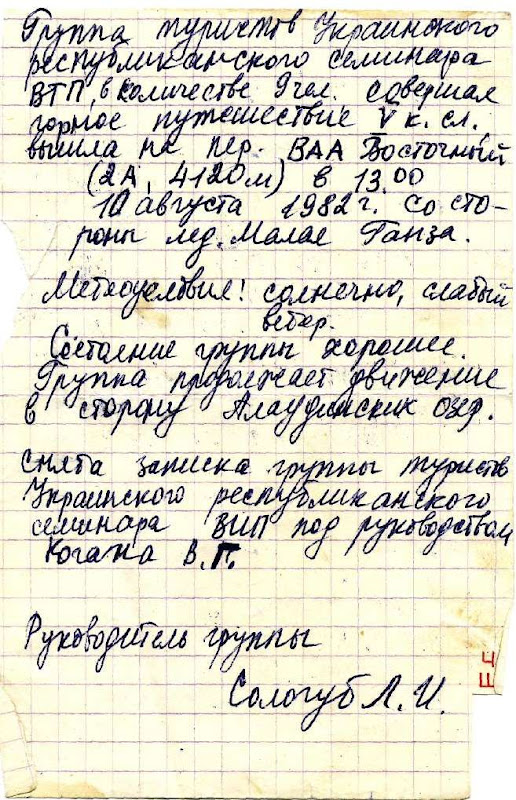 Группа туристов Украинского
республиканского семинара
ВТП, в количестве 9 чел. совершая
горное путешествие V к. сл.,
вышла на пер. ВАА Восточный
(2А, 4120м) в 13.00
10 августа 1982г. со сто-
роны лед. Малае Ганза.
Метеоусловия: солнечно, слабый
ветер.
Состояние группы хорошее.
Группа продолжает движение
в сторону Алаудинских озер.
Снята записка группы туристов
Украинского республиканского
семинара ВИП под руководством
Когана В.П.
Руководитель группы
Сологуб Л.И.